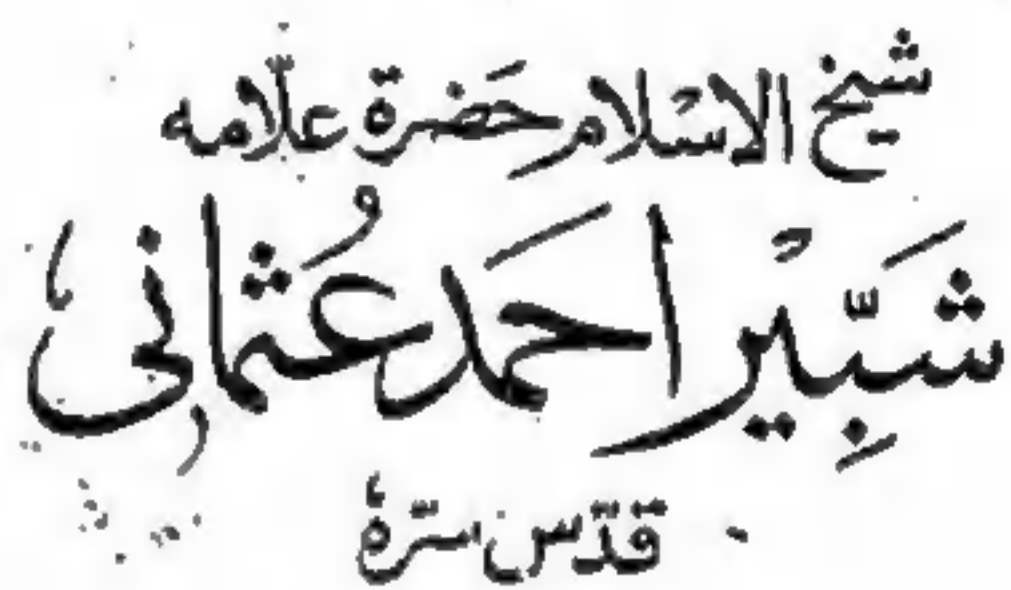 شیخ الاسْلام حَضرة علّامہ
شَبِّیْر احمَد عُثمانی
قدّس سرّہٗ